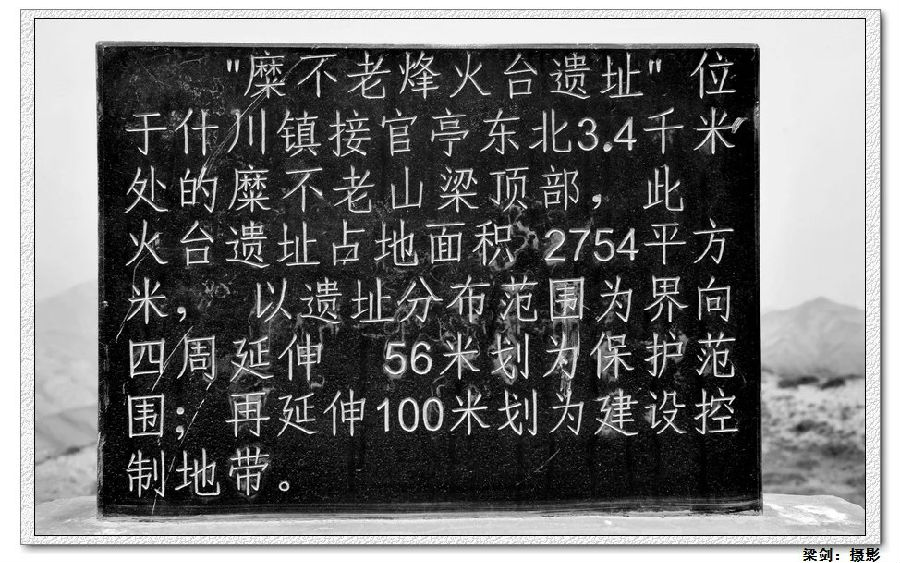 "糜不老烽火台遗址" 位
于什川镇接官亭东北3.4千米
处的糜不老山梁顶部，此
火台遗址占地面积 2754平方
米， 以遗址分布范围为界向
四周延伸 56米划为保护范
围；再延伸100米划为建设控
制地带。
梁剑：摄影